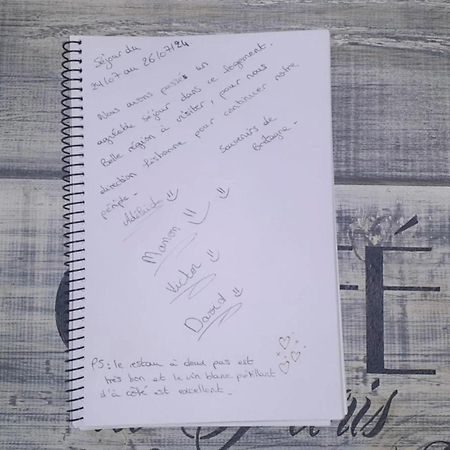 Séjour du
24/07 au 26/07/24
Nous avons passés un
agréable séjour dans ce logement.
Belle région à visiter, pour nous
direction pour continuer notre
périple -
Souvenirs de
Bretagne -
Manon
Victor
David
PS: le restau à deux pas est
très bon et le vin blanc pétillant
d'à côté est excellent -